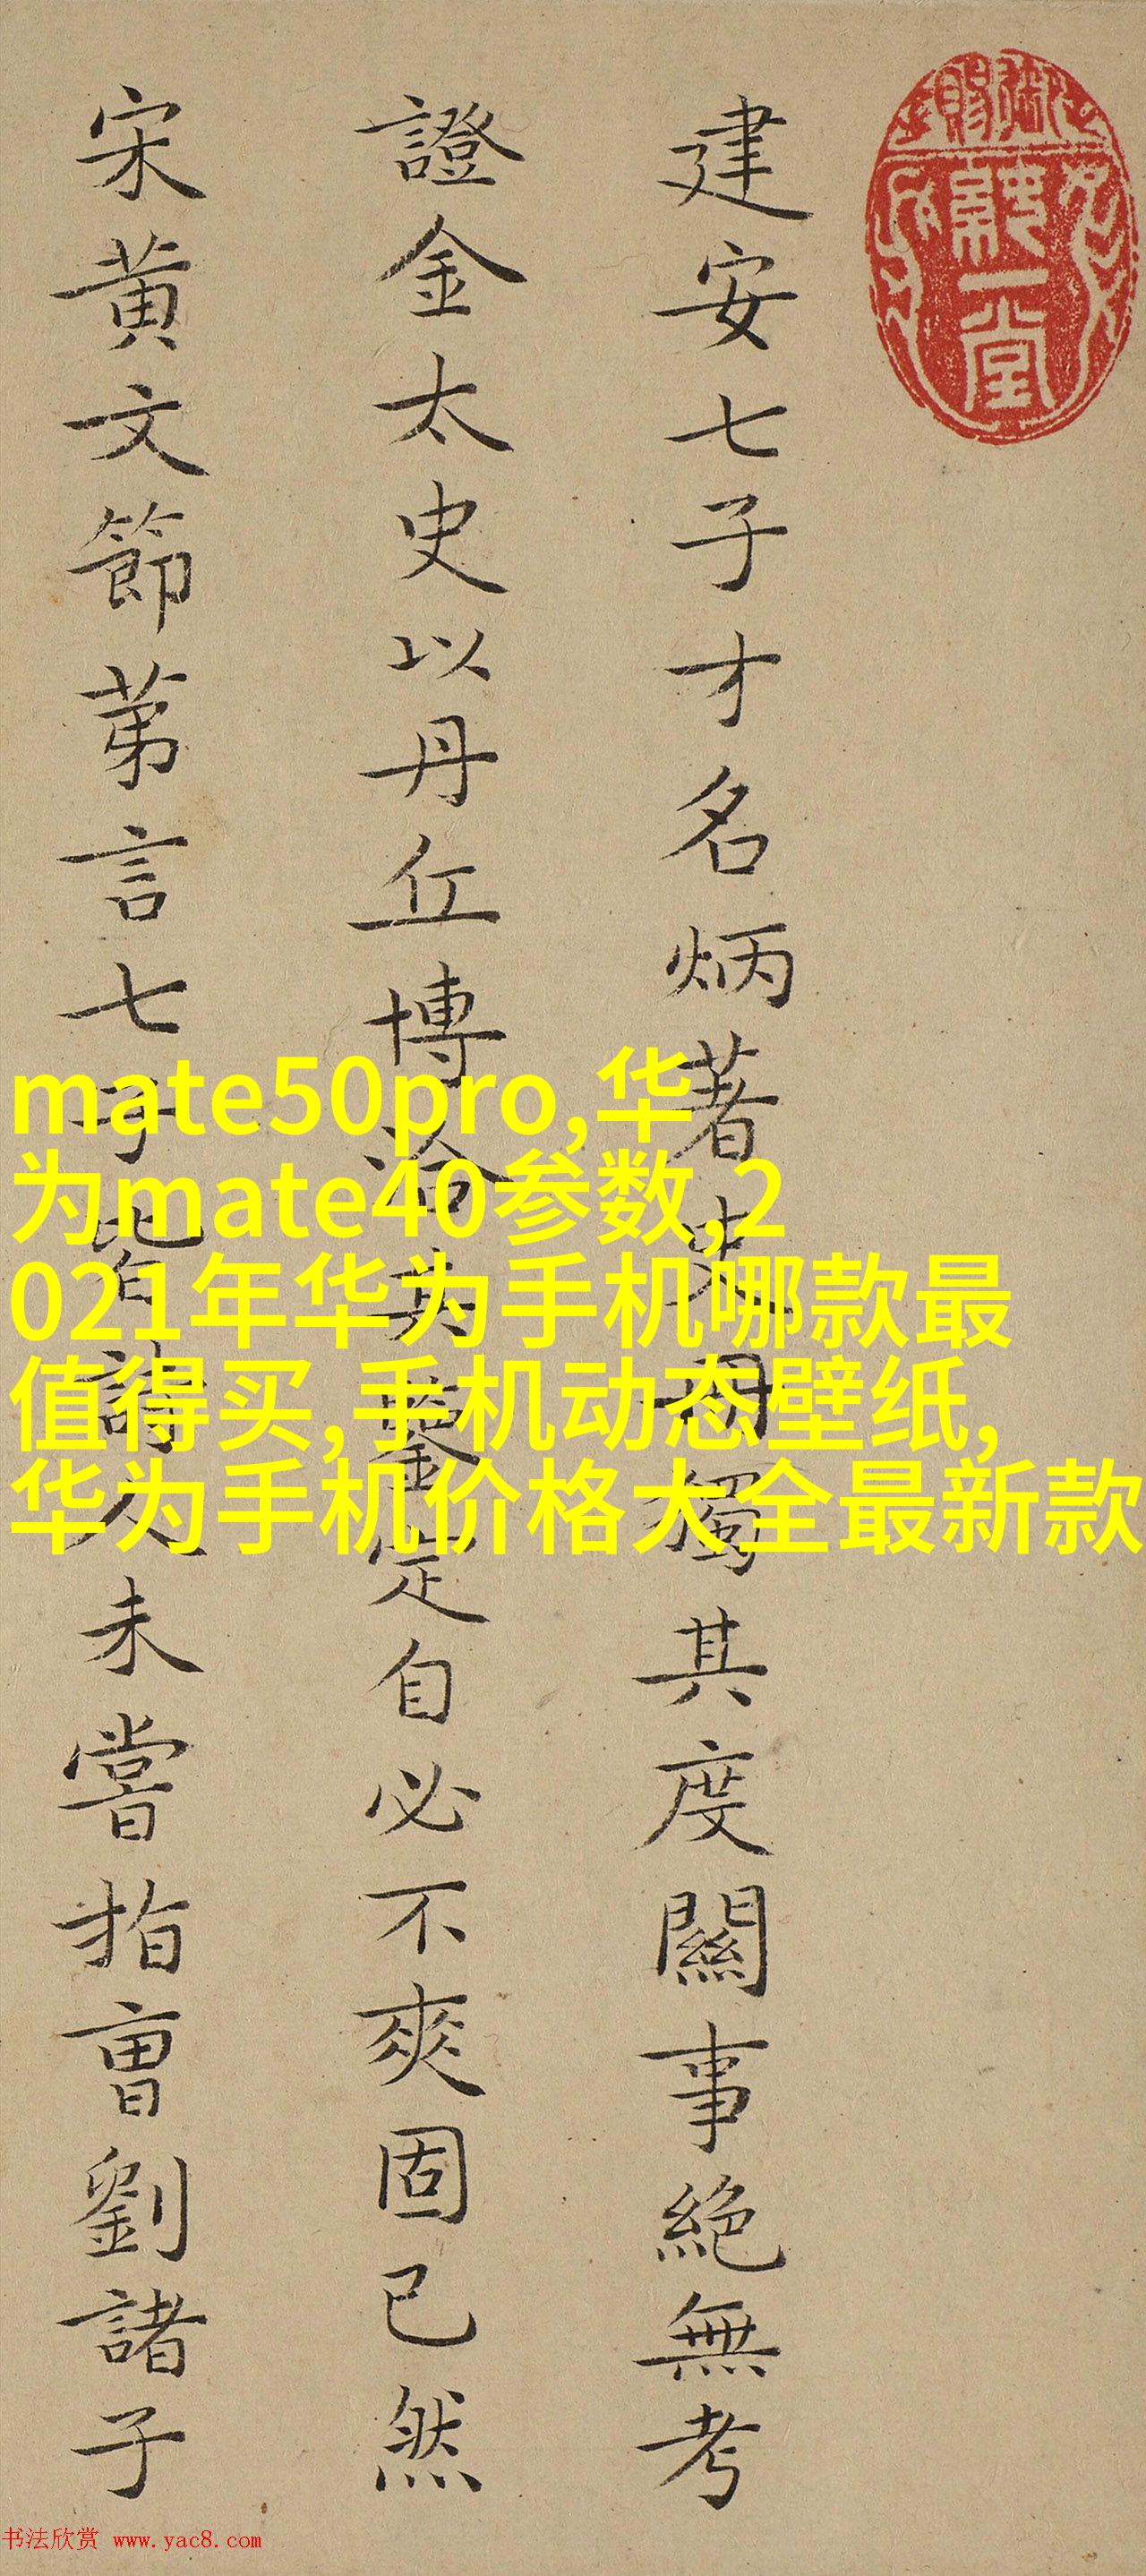 建安七子才名炳著史冊獨其度關事絶無考
證金太史以丹丘博洽其鑒定自必不爽固已然
宋黄文節苐言七子皆詩人未嘗指曹劉諸子
mate50pro,华
为mate40参数,2
021年华为手机哪款最
值得买,手机动态壁纸,
华为手机价格大全最新款
书法欣赏 www.yac8.com